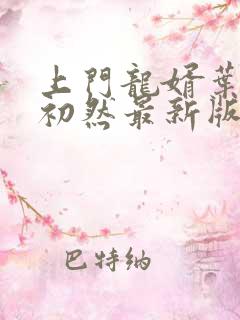 上門龍婿葉
初然最新版
巴特納